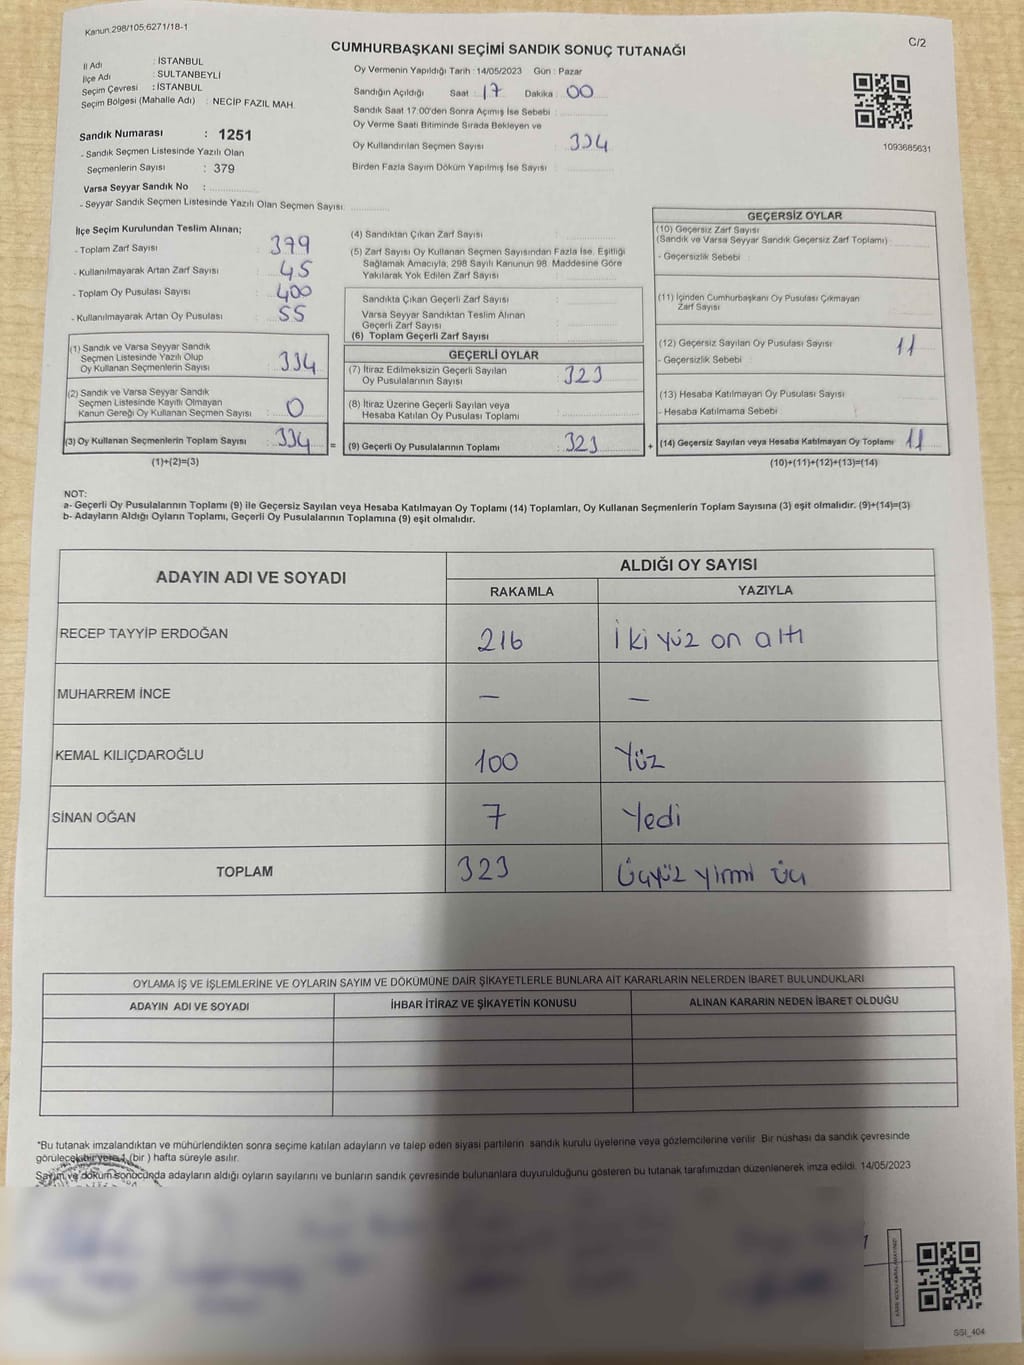 Kanun:298/105;6271/18-1
C/2
CUMHURBAŞKANI SEÇİMİ SANDIK SONUÇ TUTANAĞI
İl Adı : İSTANBUL
İlçe Adı : SULTANBEYLİ
Seçim Çevresi : İSTANBUL
Seçim Bölgesi (Mahalle Adı) : NECİP FAZIL MAH.
Sandık Numarası : 1251
- Sandık Seçmen Listesinde Yazılı Olan
Seçmenlerin Sayısı : 379
Varsa Seyyar Sandık No :
- Seyyar Sandık Seçmen Listesinde Yazılı Olan Seçmen Sayısı:
Oy Vermenin Yapıldığı Tarih : 14/05/2023 Gün : Pazar
Sandığın Açıldığı Saat : 17 Dakika : 00
Sandık Saat 17:00'den Sonra Açımış İse Sebebi :
Oy Verme Saati Bitiminde Sırada Bekleyen ve
Oy Kullandırılan Seçmen Sayısı : 334
Birden Fazla Sayım Döküm Yapılmış İse Sayısı :
1093685631
İlçe Seçim Kurulundan Teslim Alınan;
- Toplam Zarf Sayısı : 379
- Kullanılmayarak Artan Zarf Sayısı : 45
- Toplam Oy Pusulası Sayısı : 400
- Kullanılmayarak Artan Oy Pusulası : 55
(1) Sandık ve Varsa Seyyar Sandık
Seçmen Listesinde Yazılı Olup
Oy Kullanan Seçmenlerin Sayısı : 334
(2) Sandık ve Varsa Seyyar Sandık
Seçmen Listesinde Kayıtlı Olmayan
Kanun Gereği Oy Kullanan Seçmen Sayısı : 0
(3) Oy Kullanan Seçmenlerin Toplam Sayısı : 334 =
(1)+(2)=(3)
(4) Sandıktan Çıkan Zarf Sayısı :
(5) Zarf Sayısı Oy Kullanan Seçmen Sayısından Fazla İse, Eşitliği
Sağlamak Amacıyla, 298 Sayılı Kanunun 98. Maddesine Göre
Yakılarak Yok Edilen Zarf Sayısı :
Sandıkta Çıkan Geçerli Zarf Sayısı :
Varsa Seyyar Sandıktan Teslim Alınan
Geçerli Zarf Sayısı :
(6) Toplam Geçerli Zarf Sayısı :
GEÇERLİ OYLAR
(7) İtiraz Edilmeksizin Geçerli Sayılan
Oy Pusulalarının Sayısı : 323
(8) İtiraz Üzerine Geçerli Sayılan veya
Hesaba Katılan Oy Pusulası Toplamı :
(9) Geçerli Oy Pusulalarının Toplamı : 323 +
GEÇERSİZ OYLAR
(10) Geçersiz Zarf Sayısı
(Sandık ve Varsa Seyyar Sandık Geçersiz Zarf Toplamı) :
- Geçersizlik Sebebi :
(11) İçinden Cumhurbaşkanı Oy Pusulası Çıkmayan
Zarf Sayısı :
(12) Geçersiz Sayılan Oy Pusulası Sayısı : 11
- Geçersizlik Sebebi :
(13) Hesaba Katılmayan Oy Pusulası Sayısı :
- Hesaba Katılmama Sebebi :
(14) Geçersiz Sayılan veya Hesaba Katılmayan Oy Toplamı : 11
(10)+(11)+(12)+(13)=(14)
NOT:
a- Geçerli Oy Pusulalarının Toplamı (9) ile Geçersiz Sayılan veya Hesaba Katılmayan Oy Toplamı (14) Toplamları, Oy Kullanan Seçmenlerin Toplam Sayısına (3) eşit olmalıdır. (9)+(14)=(3)
b- Adayların Aldığı Oyların Toplamı, Geçerli Oy Pusulalarının Toplamına (9) eşit olmalıdır.
ADAYIN ADI VE SOYADI
ALDIĞI OY SAYISI
RAKAMLA YAZIYLA
RECEP TAYYİP ERDOĞAN 216 İki yüz on altı
MUHARREM İNCE — —
KEMAL KILIÇDAROĞLU 100 Yüz
SİNAN OĞAN 7 Yedi
TOPLAM 323 Üçyüz yirmi üç
OYLAMA İŞ VE İŞLEMLERİNE VE OYLARIN SAYIM VE DÖKÜMÜNE DAİR ŞİKAYETLERLE BUNLARA AİT KARARLARIN NELERDEN İBARET BULUNDUKLARI
ADAYIN ADI VE SOYADI İHBAR İTİRAZ VE ŞİKAYETİN KONUSU ALINAN KARARIN NEDEN İBARET OLDUĞU
*Bu tutanak imzalandıktan ve mühürlendikten sonra seçime katılan adayların ve talep eden siyasi partilerin sandık kurulu üyelerine veya gözlemcilerine verilir. Bir nüshası da sandık çevresinde
görülecek bir yere 1 (bir ) hafta süreyle asılır.
Sayım ve döküm sonucunda adayların aldığı oyların sayılarını ve bunların sandık çevresinde bulunanlara duyurulduğunu gösteren bu tutanak tarafımızdan düzenlenerek imza edildi. 14/05/2023
SSI_404